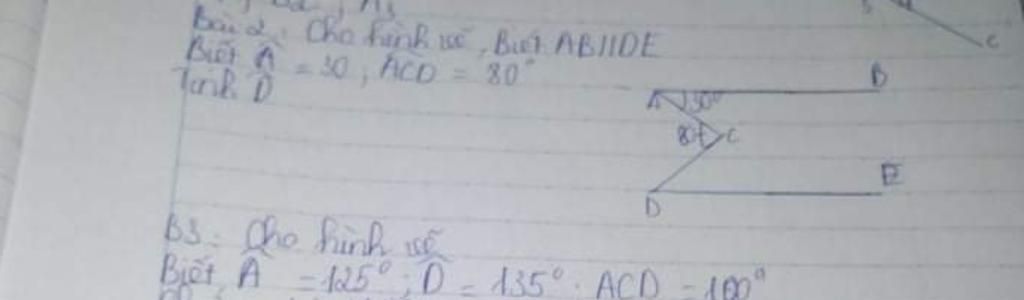 C
Bài 2: Cho hình vẽ, Biết AB//DE
Biết Â = 30, ACD = 80°
Tính D̂
A 30° B
80° C
D E
B3: Cho hình vẽ
Biết Â = 125°; D̂ = 135°. ACD = 100°